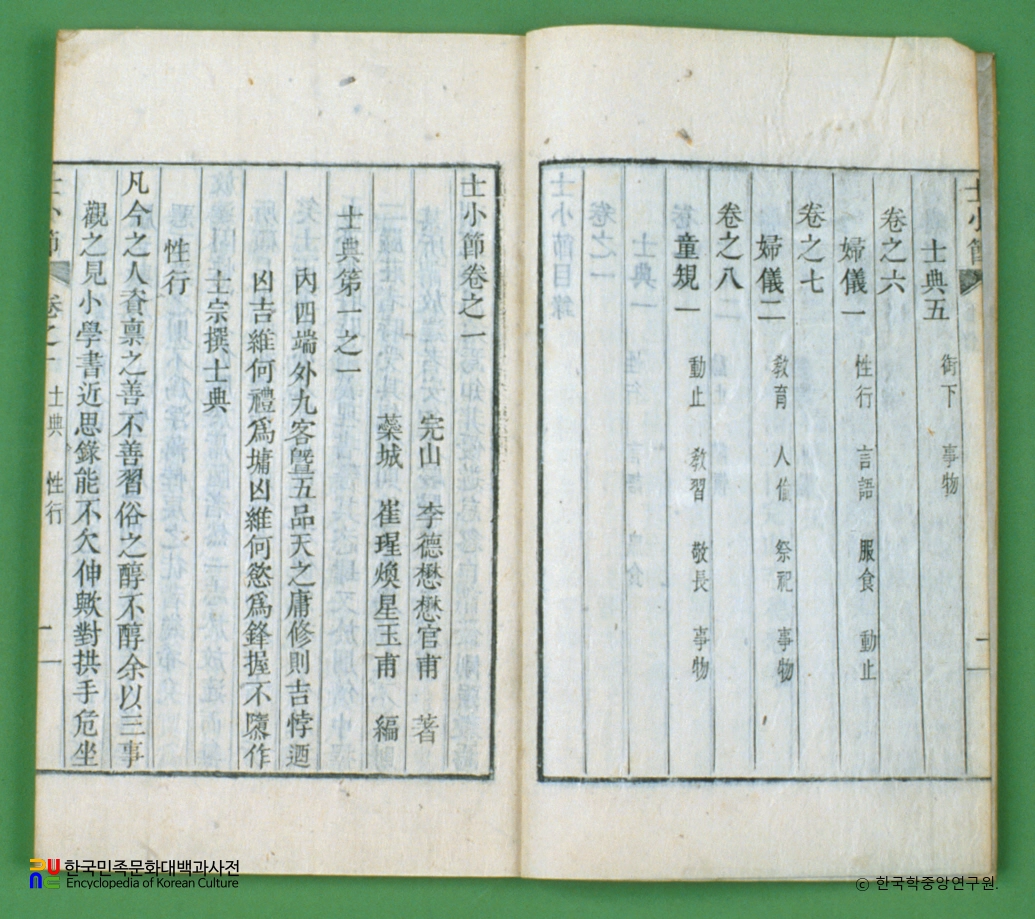 士小節
士典五　衕下　事物
卷之六
婦儀一　性行　言語　服食　動止
卷之七
婦儀二　敎育　人倫　祭祀　事物
卷之八
童規一　動止　敎習　敬長　事物
士小節卷之一
完山　李德懋懋官甫　著
蘂城　崔瑆煥星玉甫　編
士典第一之一
內四端外九容曁五品天之庸修則吉悖迺
凶吉維何禮爲墉凶維何慾爲鋒握不隳作
士宗撰士典
性行
凡今之人資稟之善不善習俗之醇不醇余以三事
觀之見小學書近思錄能不欠伸歟對拱手危坐
士小節　卷之一　士典　性行　一
한국민족문화대백과사전
Encyclopedia of Korean Culture
© 한국학중앙연구원.